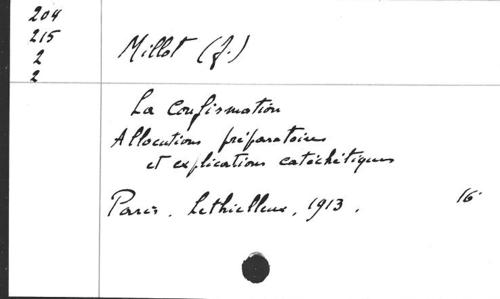 204
215
2
2
Millot (J.)
La Confirmation
Allocutions préparatoires
et explications catéchétiques
Paris, Lethielleux, 1913. 16°